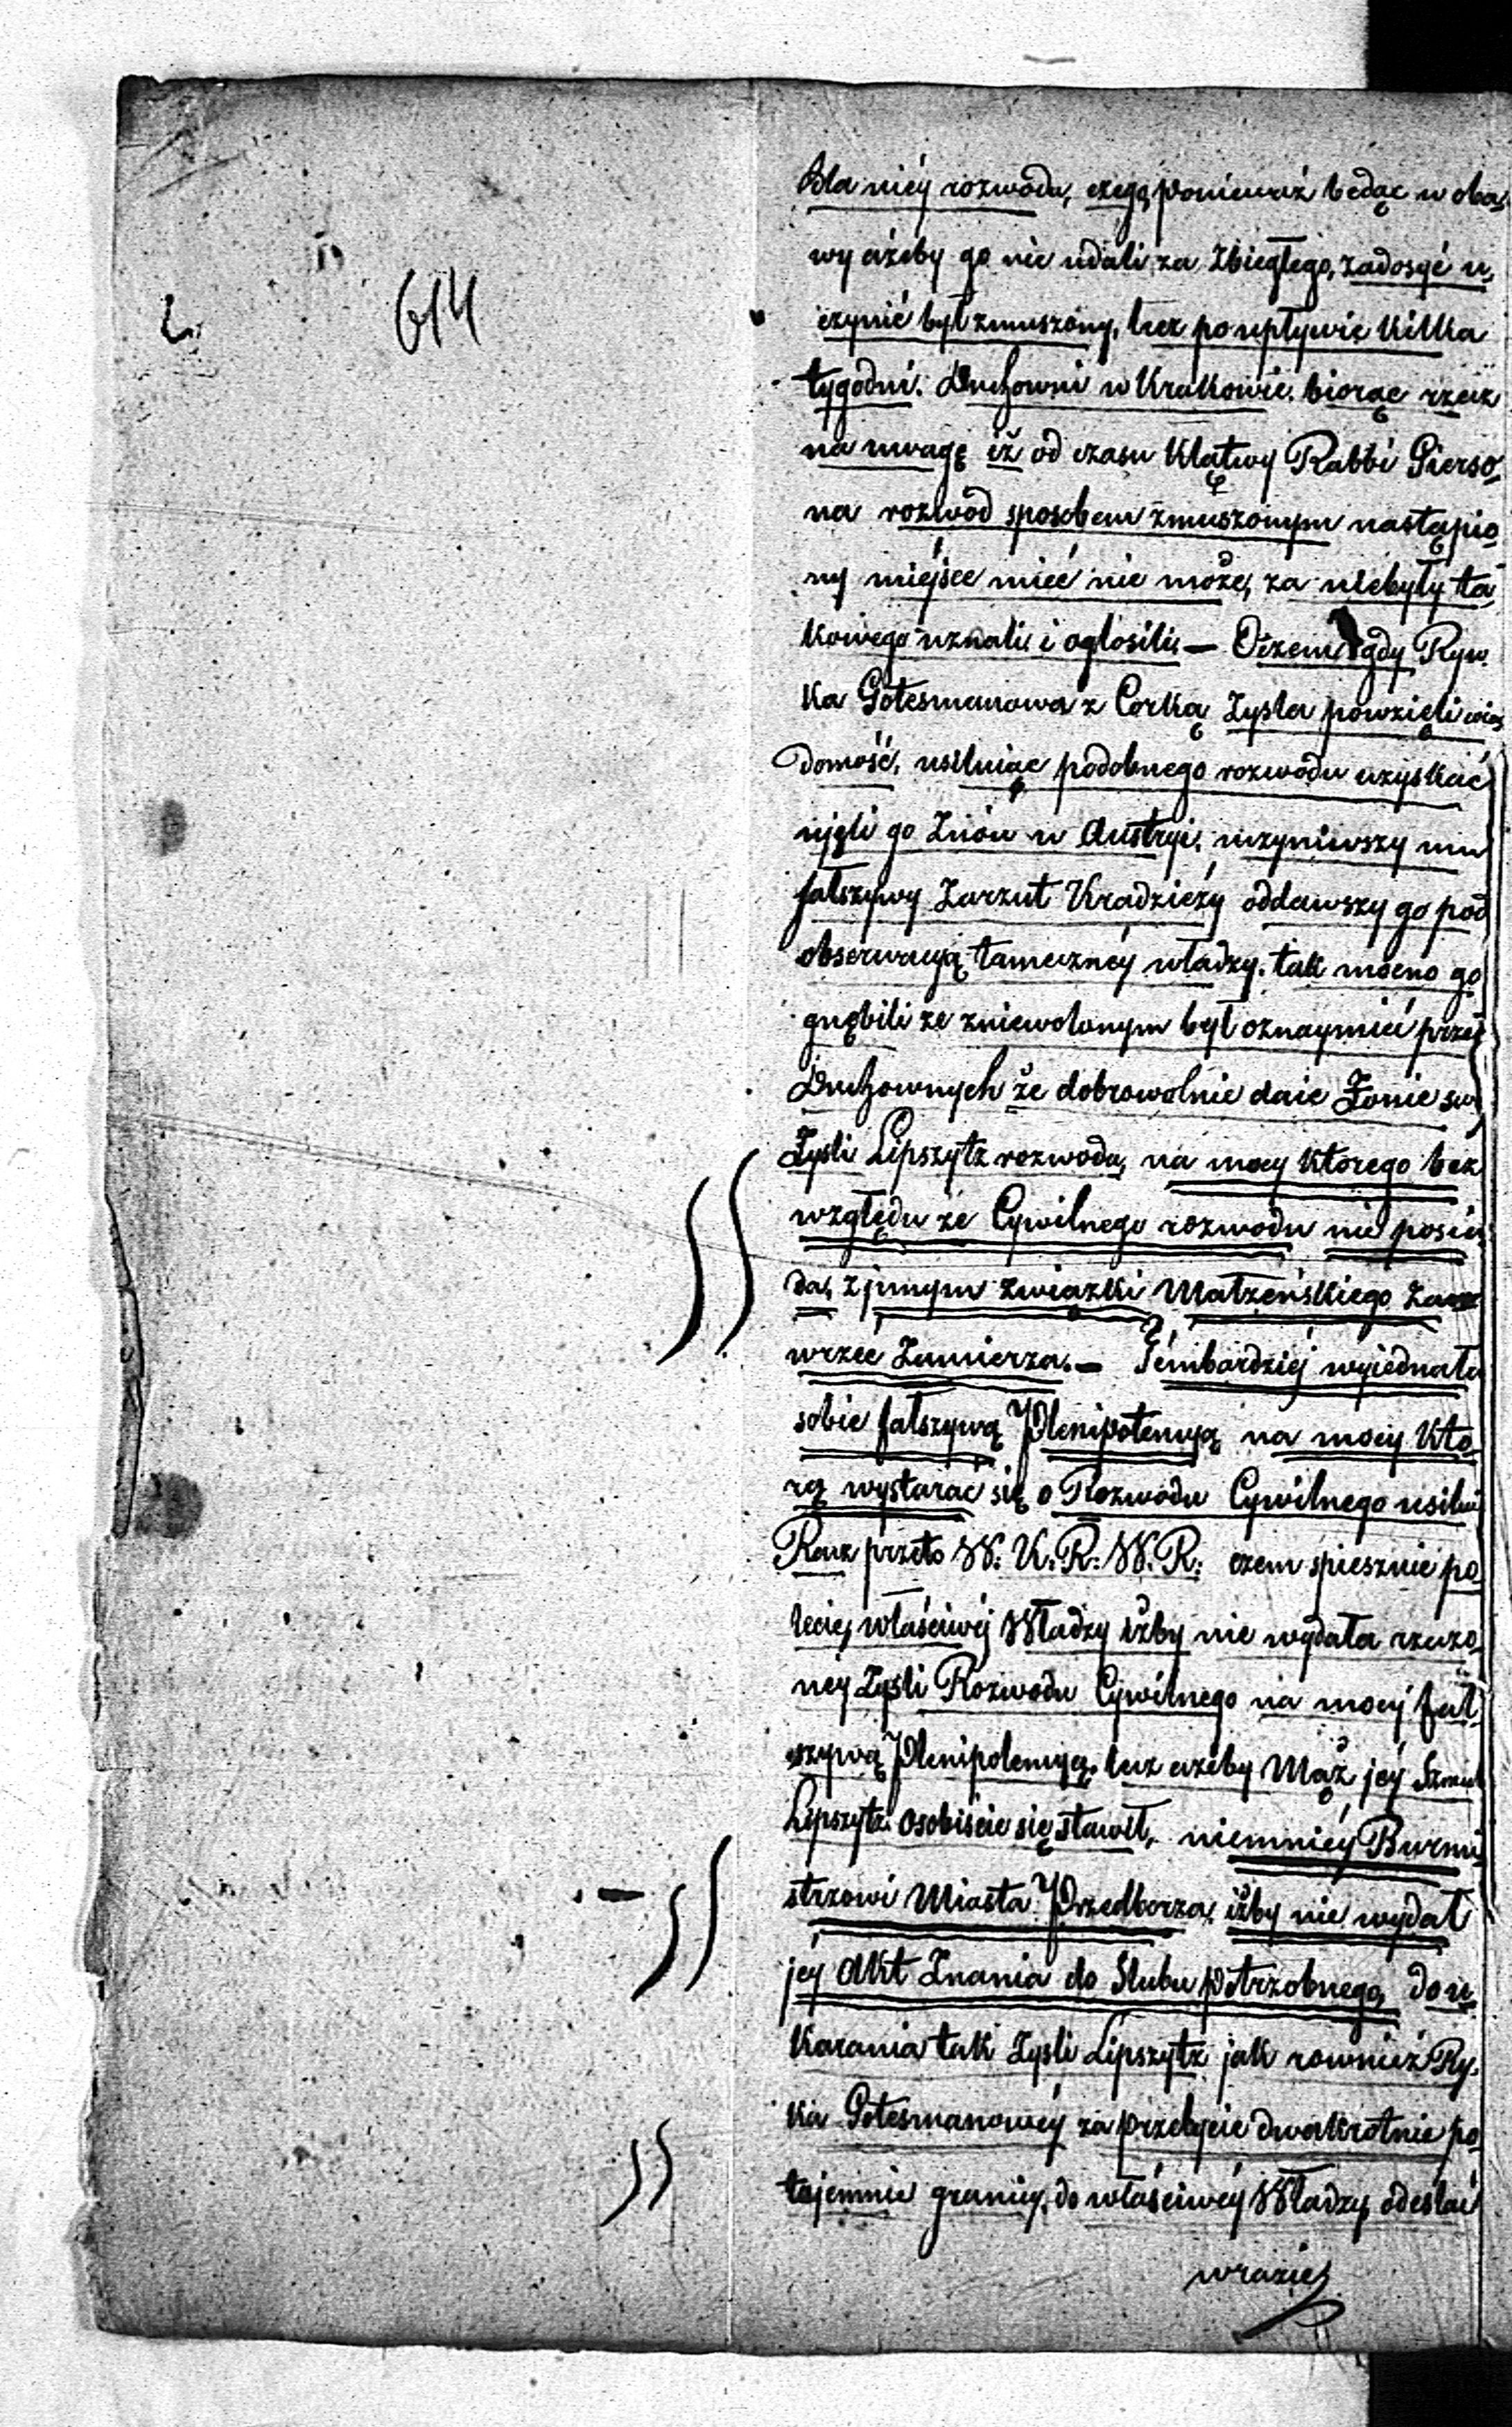 2.
614
dla niéy rozwodu, czego ponieważ będąc w oba,
wy ażeby go nie udali za Zbiegłego, zadosyć u,
czynić był zmuszony, lecz po upływie kilka
tygodni. Duchowni w Krakowie. biorąc rzecz
na uwagę iż od czasu Klątwy Rabbi Gierso,
na rozwód sposobem zmuszonym nastąpio,
ny miejsce mieć nie może, za niebyły ta,
kowego uznali i ogłosili. — Oczem gdy Ryw
ka Gotesmanowa z Corką Zysla powzięli wia,
domość, usilniąc podobnego rozwodu uzyskać
ujęli go Znów w Austryi, uczyniwszy mu
fałszywy Zarzut Kradzieży oddawszy go pod
obserwacyą tameczney władzy. tak mocno go
gnębili że zniewolonym był oznaymić przez
Duchownych że dobrowolnie daie Żonie sw
Zysli Lipszytz rozwodu, na mocy którego bez
względu że Cywilnego rozwodu nie posia
da, z jnnym związki Małżeńskiego Za
wrzec Zamierza. — Témbardziéj wyiednała
sobie fałszywą Plenipotencyą na mocy Któ,
rą wystarac się o Rozwodu Cywilnego usilui
Racz przeto W: K: R: W: R: czem spiesznie po
lecić, właściwéj Władzy iżby nie wydała rzeczo,
néy Zysli Rozwodu Cywilnego na mocy fał,
szywą Plenipotencyą, lecz ażeby Mąż jéy Szmul
Lipszytz osobiście się stawił, niemniéy Burmi
strzowi Miasta Przedborza, iżby nie wydał
jéy Akt Znania do Slubu potrzobnego, do u,
karania tak Zysli Lipszytz jak rownież Ry,
ka Gotesmanowéy za przebycie dwakrotnie po
tajemnie granicy, do właściwéy Władzy odesłać
wrazie